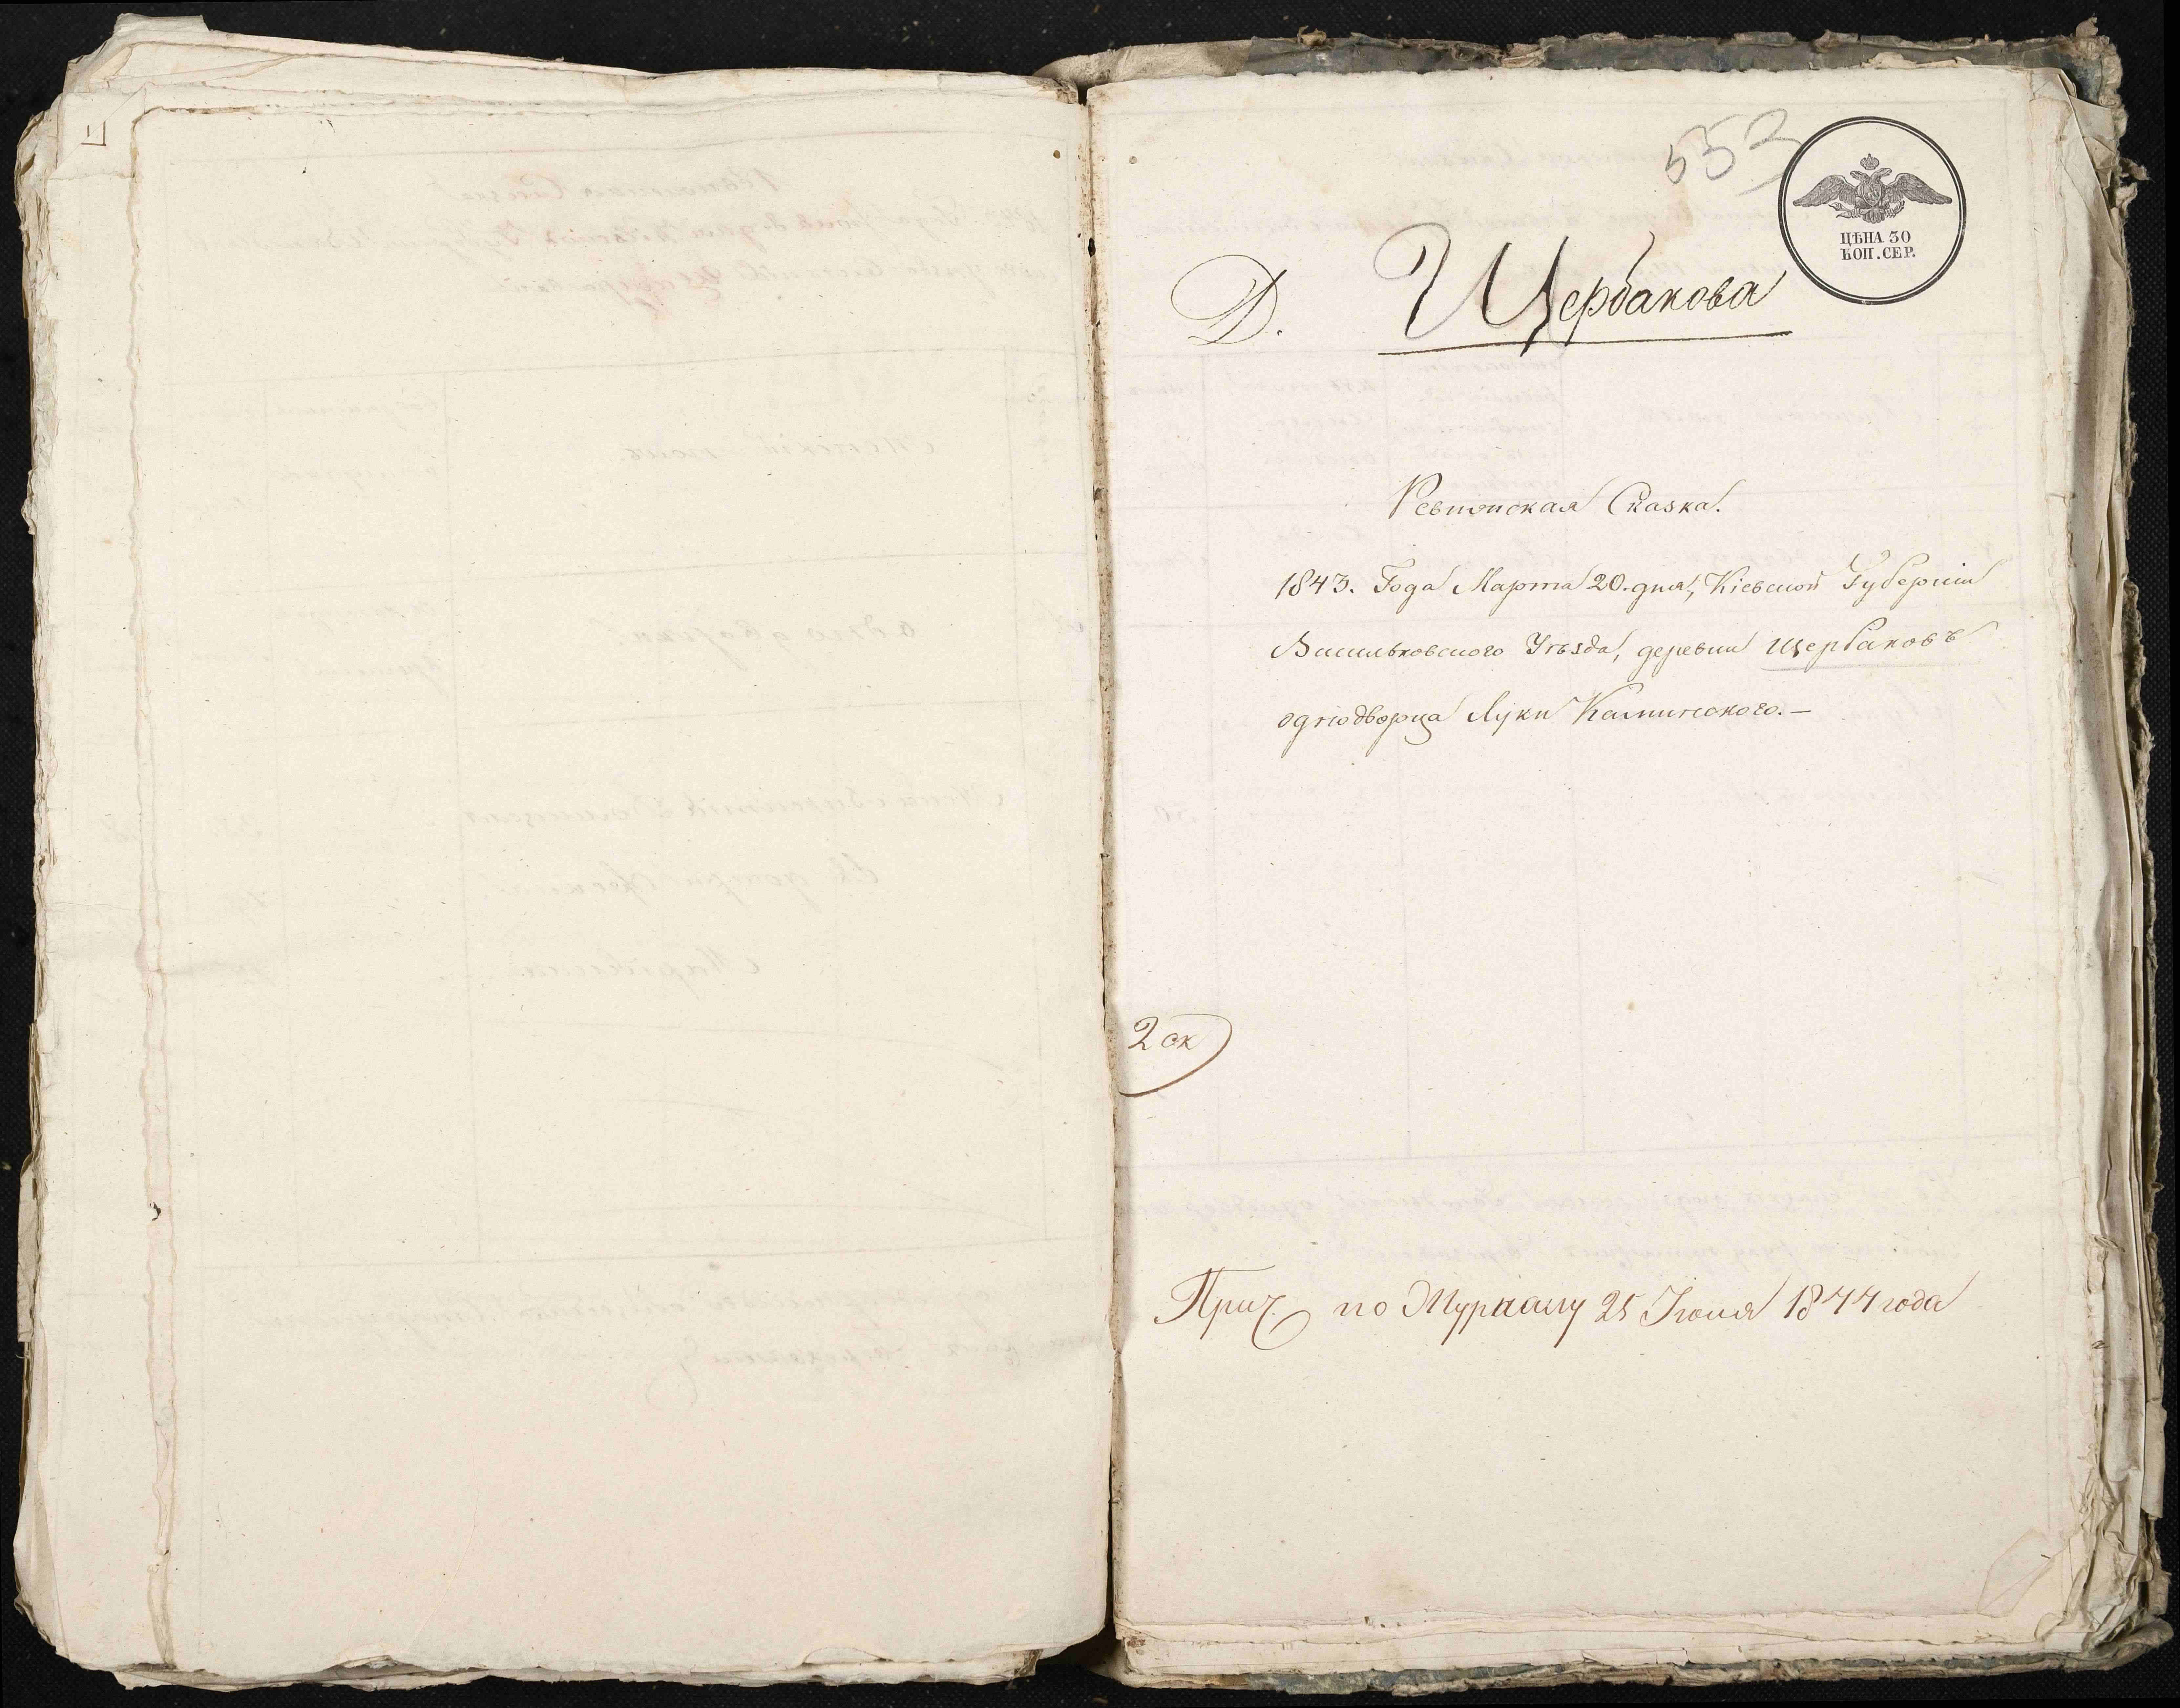 553
ЦѢНА 30
КОП. СЕР.
Д. Щербакова
Ревизская Сказка.
1843. Года Марта 20. дня, Кіевской Губерніи
Васильковского Уѣзда, деревни Щербаковъ
однодворца Луки Каминского.—
2 ск
Прич. по Журналу 25 Іюня 1844 года